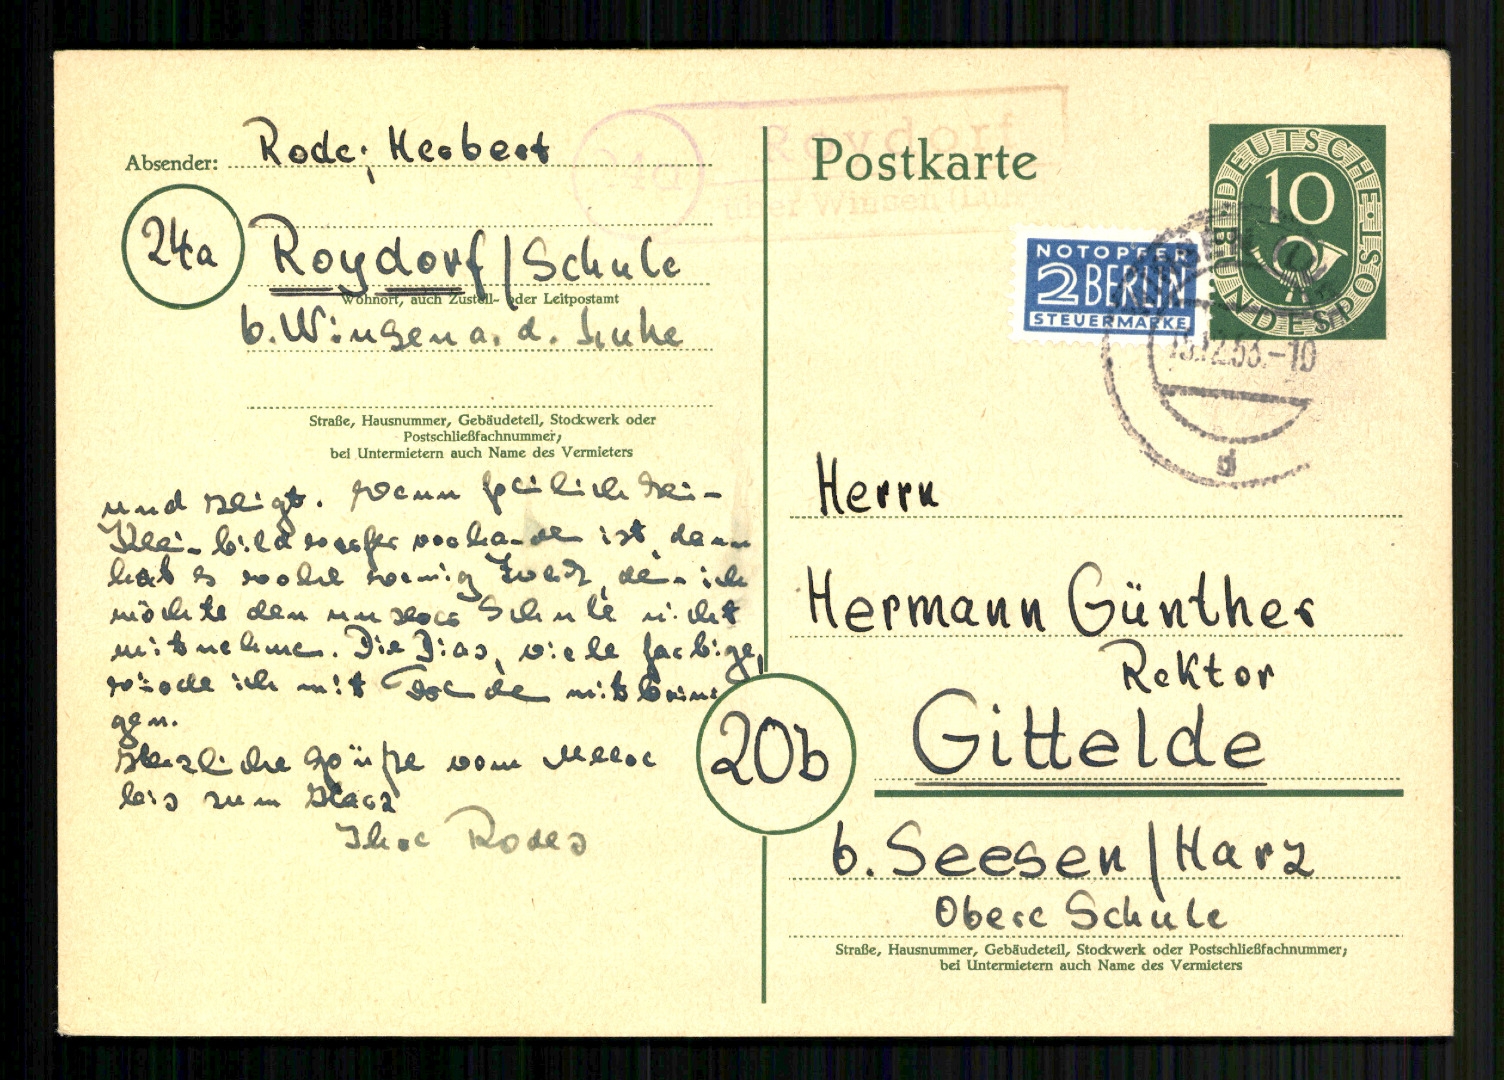 Absender: Rode, Herbert
24a
Roydorf / Schule
Wohnort, auch Zustell- oder Leitpostamt
b. Winsen a. d. Luhe
Straße, Hausnummer, Gebäudeteil, Stockwerk oder
Postschließfachnummer;
bei Untermietern auch Name des Vermieters
und zeigt. Wenn freilich kein
Kleinbildwerfer vorhanden ist, dann
hat es wohl wenig Zweck, denn ich
möchte den unserer Schule nicht
mitnehmen. Die Dias, viele farbige,
würde ich mit Freude mitbrin-
gen.
Herzliche Grüße vom
bis zum Harz
Ihre Rodes
24a
Roydorf
über Winsen (Luhe)
Postkarte
DEUTSCHE BUNDESPOST
10
NOTOPFER
2 BERLIN
STEUERMARKE
13.12.53.-10
d
Herrn
Hermann Günther
Rektor
20b
Gittelde
b. Seesen / Harz
Obere Schule
Straße, Hausnummer, Gebäudeteil, Stockwerk oder Postschließfachnummer;
bei Untermietern auch Name des Vermieters